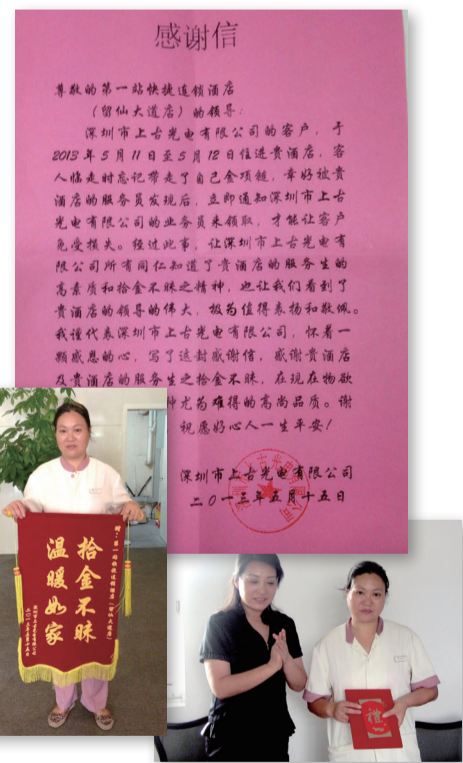 感谢信
尊敬的第一站快捷连锁酒店
（留仙大道店）的领导：
深圳市上古光电有限公司的客户，于
2013年5月11日至5月12日住进贵酒店，客
人临走时忘记带走了自己金项链，幸好被贵
酒店的服务员发现后，立即通知深圳市上古
光电有限公司的业务员来领取，才能让客户
免受损失。经过此事，让深圳市上古光电有
限公司所有同仁知道了贵酒店的服务生的
高素质和拾金不昧之精神，也让我们看到了
贵酒店的领导的伟大，极为值得表扬和敬佩。
我谨代表深圳市上古光电有限公司，怀着一
颗感恩的心，写了这封感谢信，感谢贵酒店
及贵酒店的服务生之拾金不昧，在现在物欲
种尤为难得的高尚品质。谢
祝愿好心人一生平安！
深圳市上古光电有限公司
二〇一三年五月十五日
赠：第一站快捷连锁酒店（留仙大道店）
拾金不昧
温暖如家
深圳市上古光电有限公司
二〇一三年五月十五日
禮